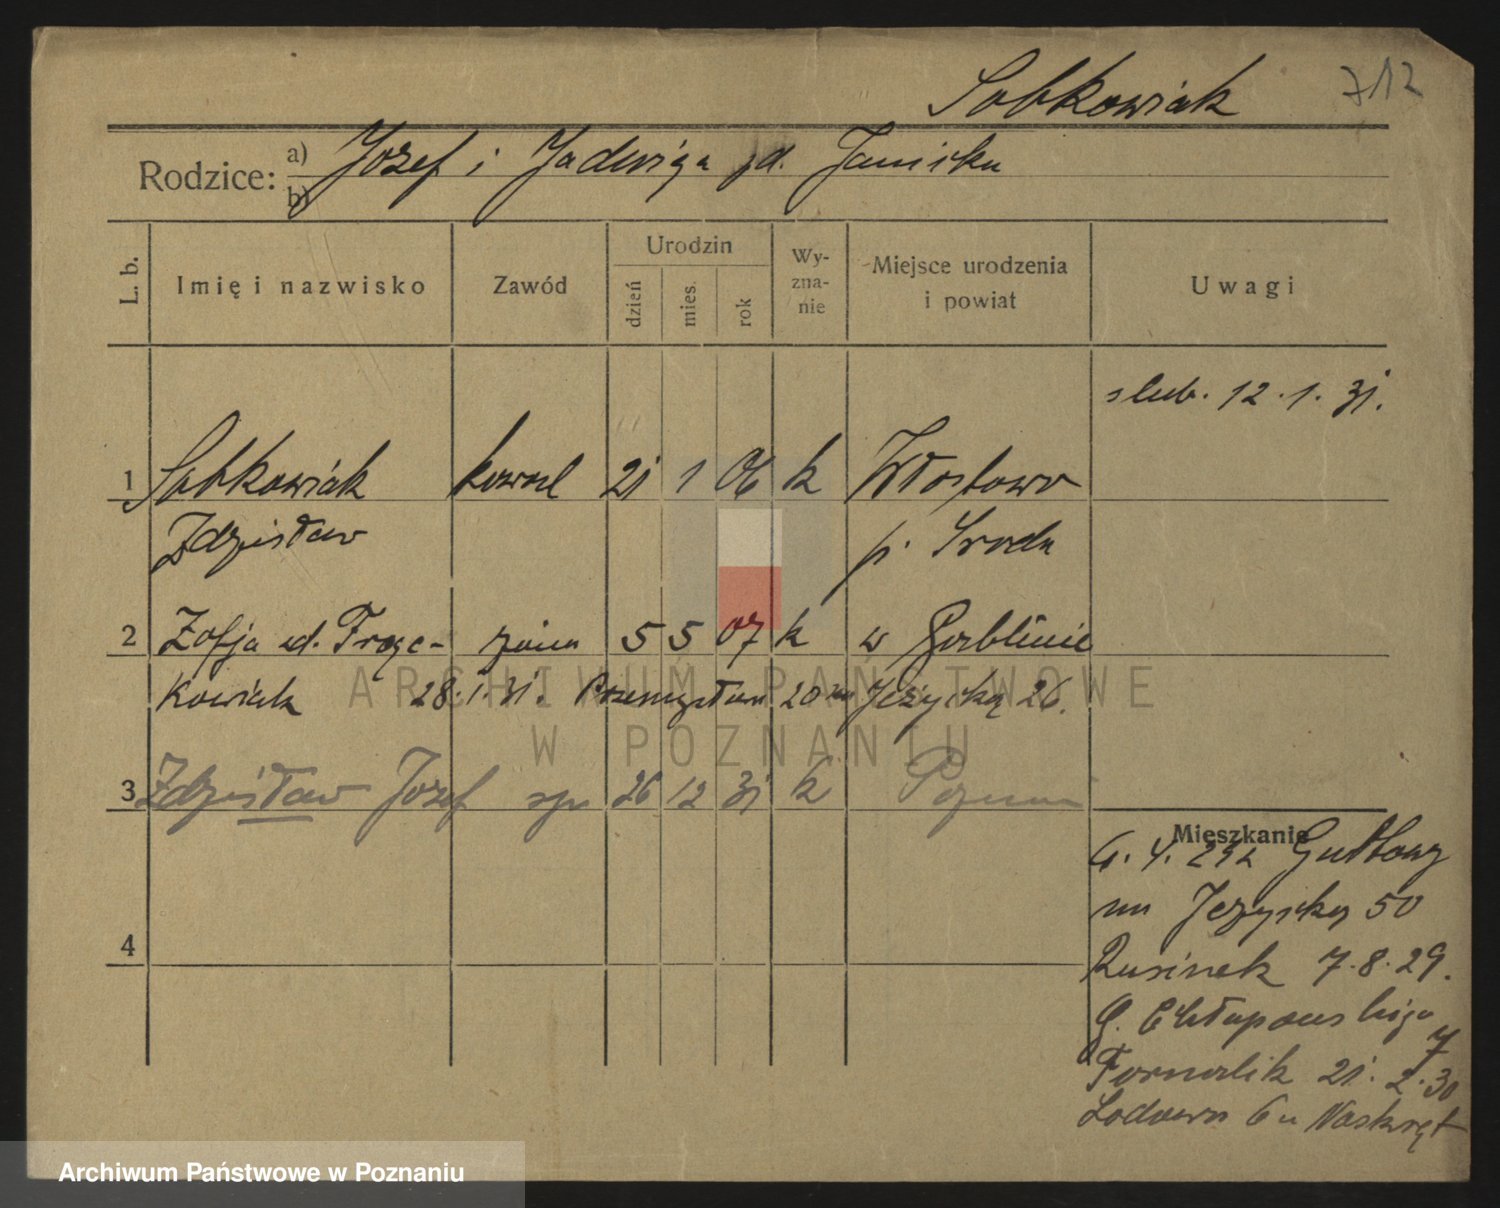 Sobkowiak 712
Rodzice: a) Józef i Jadwiga zd. Janicka
b)
L. b. Imię i nazwisko Zawód Urodzin dzień mies. rok Wy-zna-nie Miejsce urodzenia i powiat Uwagi
slub. 12.1.31.
1 Sobkowiak kowal 21 1 06 k Włostowo
Zdzisław p. Sroda
2 Zofja zd. Frące- żona 5 5 07 k w
kowiak 28.1.31. Przemysłowa 20 Jeżycką 26.
3 Zdzisław Józef syn 26 12 31 k Poznań
Mieszkanie
Gułtowy
Jeżycką 50
Rusinek 7.8.29.
G. Chłapowskiego 7
Fornalik 21.2.30
4
Lodowa 6 u Naskręt
ARCHIWUM PAŃSTWOWE
W POZNANIU
Archiwum Państwowe w Poznaniu